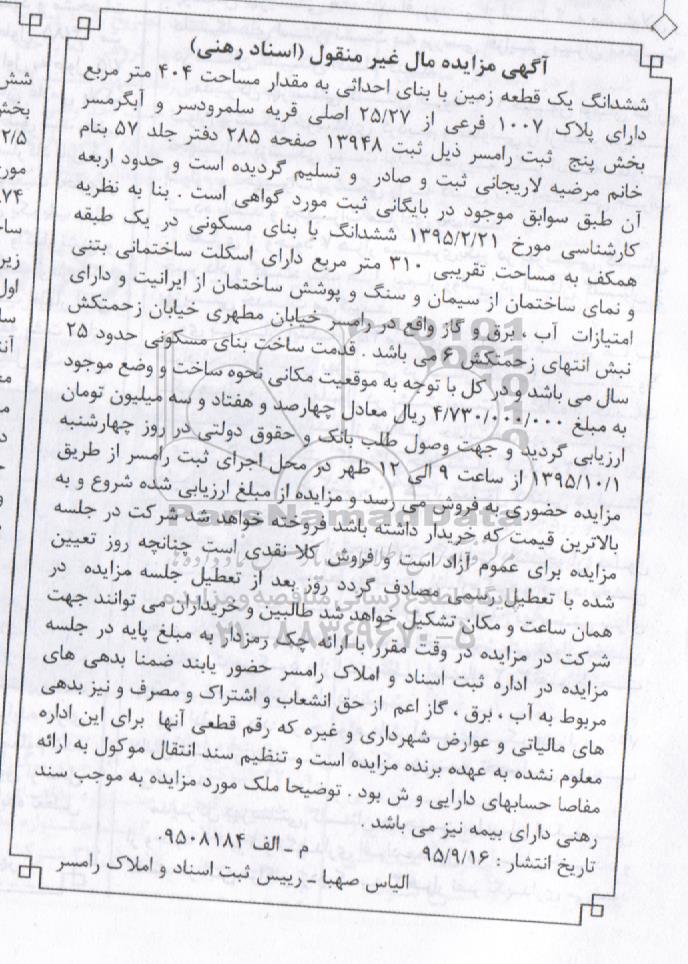 آگهی مزایده مال غیر منقول (اسناد رهنی)
ششدانگ یک قطعه زمین با بنای احداثی به مقدار مساحت ۴۰۴ متر مربع
دارای پلاک ۱۰۰۷ فرعی از ۲۵/۲۷ اصلی قریه سلمرودسر و آبگرمسر
بخش پنج ثبت رامسر ذیل ثبت ۱۳۹۴۸ صفحه ۲۸۵ دفتر جلد ۵۷ بنام
خانم مرضیه لاریجانی ثبت و صادر و تسلیم گردیده است و حدود اربعه
آن طبق سوابق موجود در بایگانی ثبت مورد گواهی است . بنا به نظریه
کارشناسی مورخ ۱۳۹۵/۲/۲۱ ششدانگ با بنای مسکونی در یک طبقه
همکف به مساحت تقریبی ۳۱۰ متر مربع دارای اسکلت ساختمانی بتنی
و نمای ساختمان از سیمان و سنگ و پوشش ساختمان از ایرانیت و دارای
امتیازات آب ، برق و گاز واقع در رامسر خیابان مطهری خیابان زحمتکش
نبش انتهای زحمتکش ۶ می باشد . قدمت ساخت بنای مسکونی حدود ۲۵
سال می باشد و در کل با توجه به موقعیت مکانی نحوه ساخت و وضع موجود
به مبلغ ۴/۷۳۰/۰۰۰/۰۰۰ ریال معادل چهارصد و هفتاد و سه میلیون تومان
ارزیابی گردید و جهت وصول طلب بانک و حقوق دولتی در روز چهارشنبه
۱۳۹۵/۱۰/۱ از ساعت ۹ الی ۱۲ ظهر در محل اجرای ثبت رامسر از طریق
مزایده حضوری به فروش می رسد و مزایده از مبلغ ارزیابی شده شروع و به
بالاترین قیمت که خریدار داشته باشد فروخته خواهد شد شرکت در جلسه
مزایده برای عموم آزاد است و فروش کلا نقدی است چنانچه روز تعیین
شده با تعطیل رسمی مصادف گردد روز بعد از تعطیل جلسه مزایده در
همان ساعت و مکان تشکیل خواهد شد طالبین و خریداران می توانند جهت
شرکت در مزایده در وقت مقرر با ارائه چک رمزدار به مبلغ پایه در جلسه
مزایده در اداره ثبت اسناد و املاک رامسر حضور یابند ضمنا بدهی های
مربوط به آب ، برق ، گاز اعم از حق انشعاب و اشتراک و مصرف و نیز بدهی
های مالیاتی و عوارض شهرداری و غیره که رقم قطعی آنها برای این اداره
معلوم نشده به عهده برنده مزایده است و تنظیم سند انتقال موکول به ارائه
مفاصا حسابهای دارایی و ش بود . توضیحا ملک مورد مزایده به موجب سند
رهنی دارای بیمه نیز می باشد.
تاریخ انتشار : ۹۵/۹/۱۶ م ـ الف ۹۵۰۸۱۸۴
الیاس صهبا ـ رییس ثبت اسناد و املاک رامسر
ParsNamadData
۰۲۱-۸۸۳۴۹۶۷۰-۵